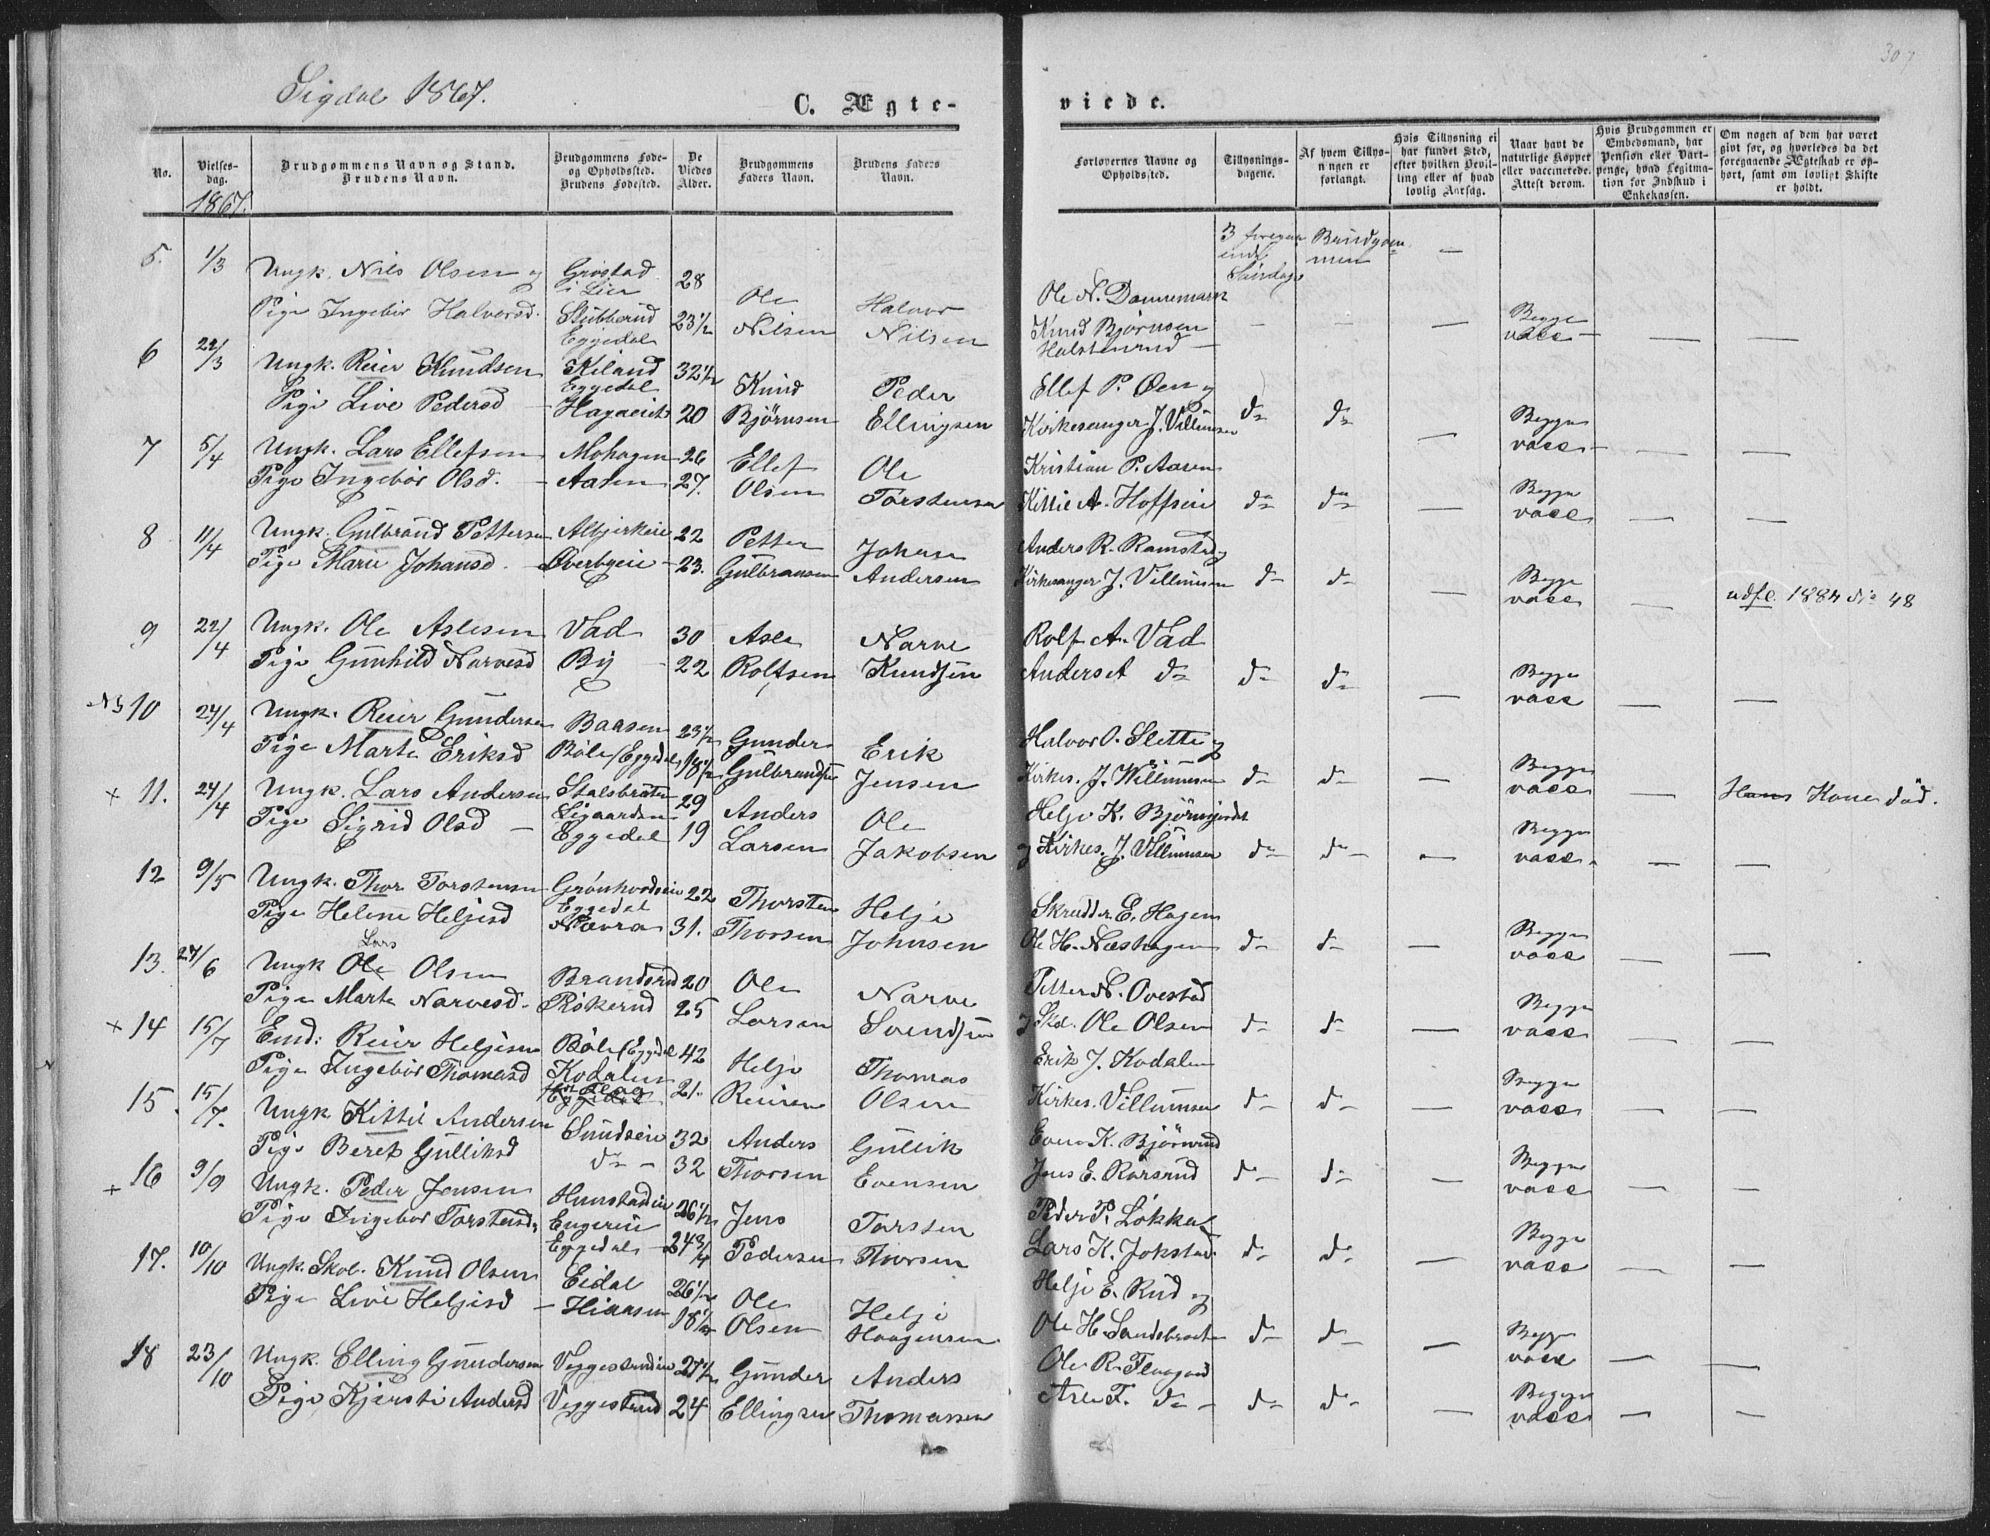 307
Sigdal 1867.
C. Ægte-
viede.
No.
Vielses-
dag.
1867.
Brudgommens Navn og Stand.
Brudens Navn.
Brudgommens Føde-
og Opholdssted.
Brudens Fødested.
De
Viedes
Alder.
Brudgommens
Faders Navn.
Brudens Faders
Navn.
Forlovernes Navne og
Opholdssted.
Tillysnings-
dagene.
Af hvem Tillys-
ningen er
forlangt.
Hvis Tillysning ei
har fundet Sted,
efter hvilken Bevil-
ling eller af hvad
lovlig Aarsag.
Naar havt de
naturlige Kopper
eller vaccinerede.
Attest derom.
Hvis Brudgommen er
Embedsmand, har
Pension eller Vart-
penge, hvad Legitima-
tion for Indskud i
Enkekassen.
Om nogen af dem har været
givt før, og hvorledes da det
foregaaende Ægteskab er op-
hørt, samt om lovligt Skifte
er holdt.
5. 1/3 Ungk. Nils Olsen og Grøstad i Lier 28 Ole Halvor Ole N. Dannemark 3 foregaaende Søndage Brudgommen —
Pige Ingebør Halvorsd. Stubberud Eggedal 23 1/2 Nilsen Nilsen Knud Bjørnsen Halstenrud — — — Begge vacc — — —
6 22/3 Ungk. Reier Knudsen Kiland Eggedal 32 1/2 Knud Peder Ellef P. Øen og
Pige Live Pedersd — Hagaeiet 20 Bjørnsen Ellingsen Kirkesanger J. Villumsen do do — Begge vacc —
7 5/4 Ungk. Lars Ellefsen Mohagen 26 Ellef Ole Kristian P. Aasen
Pige Ingebør Olsd. — Aasen 27. Olsen Torstensen Kittil A. Hoffseie do do — Begge vacc — —
8 11/4 Ungk. Gulbrand Pettersen Albjerkeie 22 Petter Johan Anders R. Ramstad og
Pige Marie Johansd. — Øverbyeie 23. Gulbransen Andersen Kirkesanger J. Villumsen do do — Begge vacc — udfl. 1884 No 48
9 22/4 Ungk. Ole Aslesen Vad 30 Asle Narve Rolf A. Vad
Pige Gunhild Narvesd By — 22 Rolfsen Knudsen Anders A do do do — Begge vacc — —
NB 10 24/4 Ungk. Reier Gundersen Baasen 23 1/2 Gunder Erik Halvor O. Slette og
Pige Marte Eriksd Bøle (Eggedal) 18 1/2 Gulbrandsen Jensen Kirkes. J. Willumsen do do — Begge vacc — Hans Kone død.
+ 11. 24/4 Ungk. Lars Andersen Stalsbraten 29 Anders Ole Helje K. Bjørnsjordet
Pige Sigrid Olsd — Ligaarden Eggedal 19 Larsen Jakobsen og Kirkes. J. Villumsen do do — Begge vacc. — —
12 9/5 Ungk. Thor Torstensen Grønhovdeie Eggedal 22 Thorsten Helje Skrædder E. Hagen
Pige Helene Heljesd Nævra 31. Thorsen Johnsen Ole H. Næshagen do do — Begge vacc — —
Lars
13. 24/6 Ungk Ole Olsen Brandsrud 20 Ole Narve Petter N. Ovestad
Pige Marte Narvesd. Røkerud 25 Larsen Svendsen og Skol. Ole Olsen do do — Begge vacc — —
+ 14 15/7 Emd: Reier Heljesen Bøle (Eggedal 42 Helje Thomas Erik J. Kodalen
Pige Ingebør Thomasd Kodalen 21. Reiersen Olsen Kirkes. Villumsen do do — Begge vacc — —
15. 15/7. Ungk. Kittil Andersen Sundeie 32 Anders Gullik Even K. Bjørnrud
Pige Beret Gulliksd do — 32 Thorsen Evensen Jens E. Kørsrud do do — Begge vacc — —
+ 16 9/9 Ungk. Peder Jensen Hunstadeie 26 1/2 Jens Torsten Peder P. Løkka
Pige Ingebør Torstensd. Engereie Eggedal — 24 3/4 Pedersen Thorsen Lars K. Jokstad do do — Begge vacc — —
17. 10/10 Ungk. Skol. Knud Olsen Eidal 26 1/2 Ole Helje Helje E. Rud og
Pige Live Heljesd — Hiaasen 18 1/2 Olsen Haagensen Ole H. Sandsbraaten do do — Begge vacc — —
18 23/10 Ungk. Elling Gundersen Veggesrudeie 27 1/2 Gunder Anders Ole R. Flaagan
Pige Kjersti Andersd Veggesrud 24 Ellingsen Thomassen Asle F. do — do do — Begge vacc — —